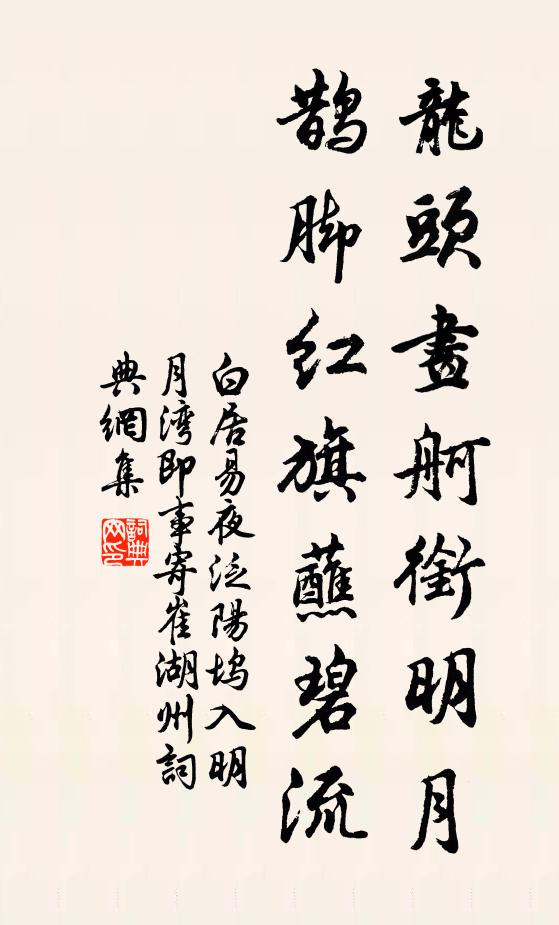 龍頭畫舸銜明月
鵲脚紅旗蘸碧流
白居易夜泛陽塢入明
月湾即事寄崔湖州詞
典網集
詞典
网印